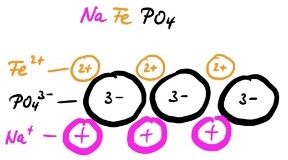 Na Fe PO₄
Fe²⁺ — 2+ 2+ 2+
PO₄³⁻ — 3- 3- 3-
Na⁺ — + + +